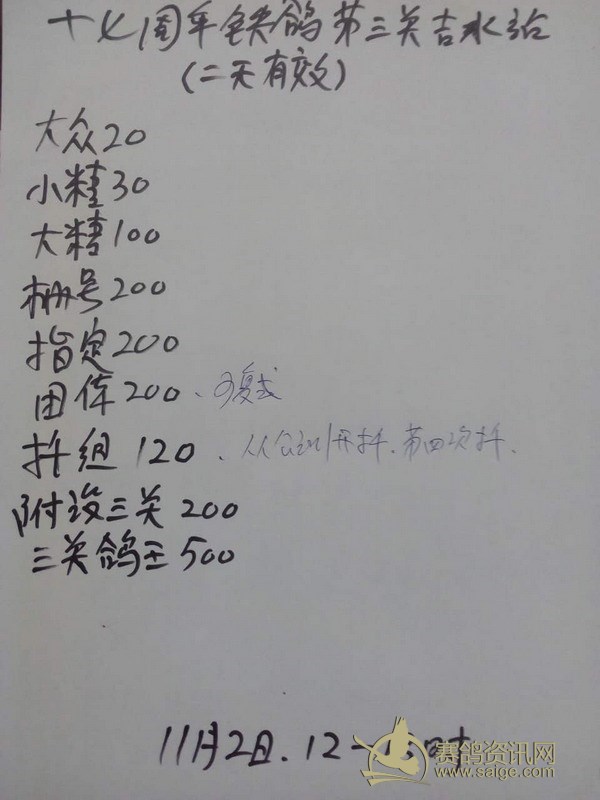 十七周年铁鸽第三关吉水站
(二天有效)
大众20
小精30
大精100
栅号200
指定200
团体200、可复式
扦组120、从会训开扦、第四次扦、
附设三关200
三关鸽王500
11月2日、12-15时
赛鸽资讯网
www.saige.com